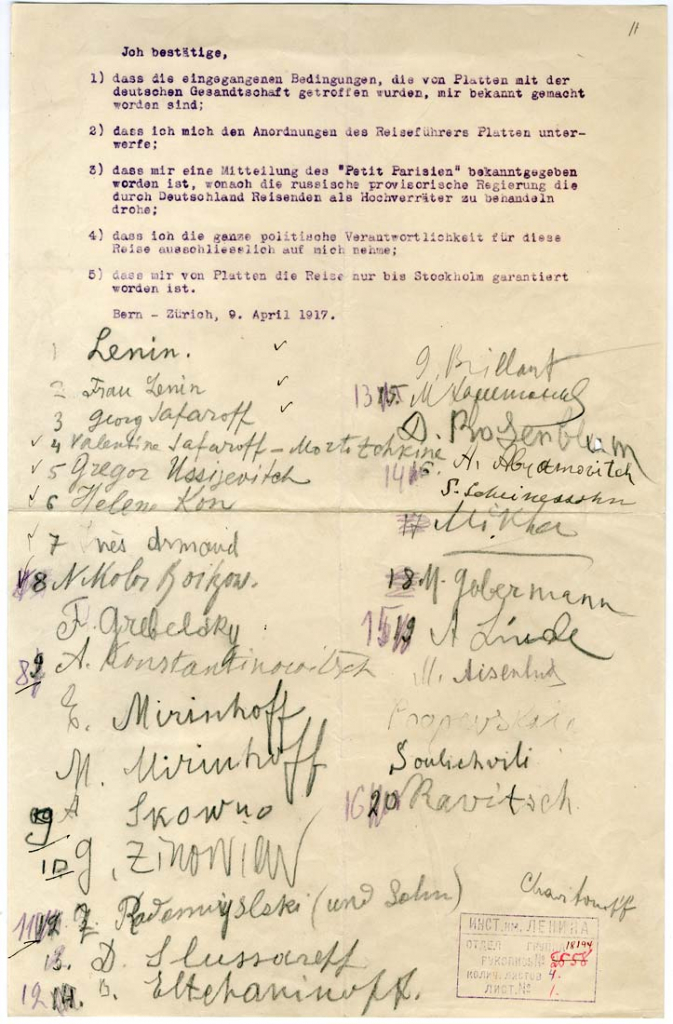 11
Joh bestätige,
1) dass die eingegangenen Bedingungen, die von Platten mit der
deutschen Gesandtschaft getroffen wurden, mir bekannt gemacht
worden sind;
2) dass ich mich den Anordnungen des Reiseführers Platten unter-
werfe;
3) dass mir eine Mitteilung des "Petit Parisien" bekanntgegeben
worden ist, wonach die russische provisorische Regierung die
durch Deutschland Reisenden als Hochverräter zu behandeln
drohe;
4) dass ich die ganze politische Verantwortlichkeit für diese
Reise ausschliesslich auf mich nehme;
5) dass mir von Platten die Reise nur bis Stockholm garantiert
worden ist.
Bern - Zürich, 9. April 1917.
1 Lenin.
2 Frau Lenin
3 Georg Safaroff
4 Valentine Safaroff - Mortotchkine
5 Gregor Ussijevitch
6 Helene Kon
7 Inès Armand
8 Nikolai Boitzow.
F. Grebelsky
9 A. Konstantinowitsch
E. Mirinhoff
M. Mirinhoff
9 A Skowno
10 G. Zinowiew
11 Z. Radomyslski (und Sohn)
D. Slussareff
12 B. Eltchaninoff.
G. Brillant
13 M
D. Rosenblum
14 A. Abramovitch
S. Scheinessohn
Mikha
18 M. Gobermann
15 19 A Linde
M. Aisenhud
Soulichvili
16 20 Ravitsch
Charitonoff
ИНСТ. им. ЛЕНИНА
ОТДЕЛ ГРУПП 18194
РУКОПИС № 8558
КОЛИЧ. ЛИСТОВ 4.
ЛИСТ. № 1.